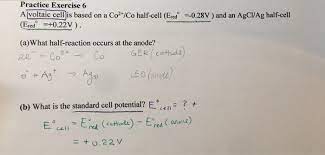 Practice Exercise 6
A voltaic cell is based on a Co²⁺/Co half-cell (E°red =-0.28V) and an AgCl/Ag half-cell
(E°red =+0.22V).
(a)What half-reaction occurs at the anode?
2e⁻ + Co²⁺ → Co GER (cathode)
e⁻ + Ag⁺ → Ag LEO (anode)
(b) What is the standard cell potential? E°cell = ? +
E°cell = E°red (cathode) - E°red (anode)
= +0.22V